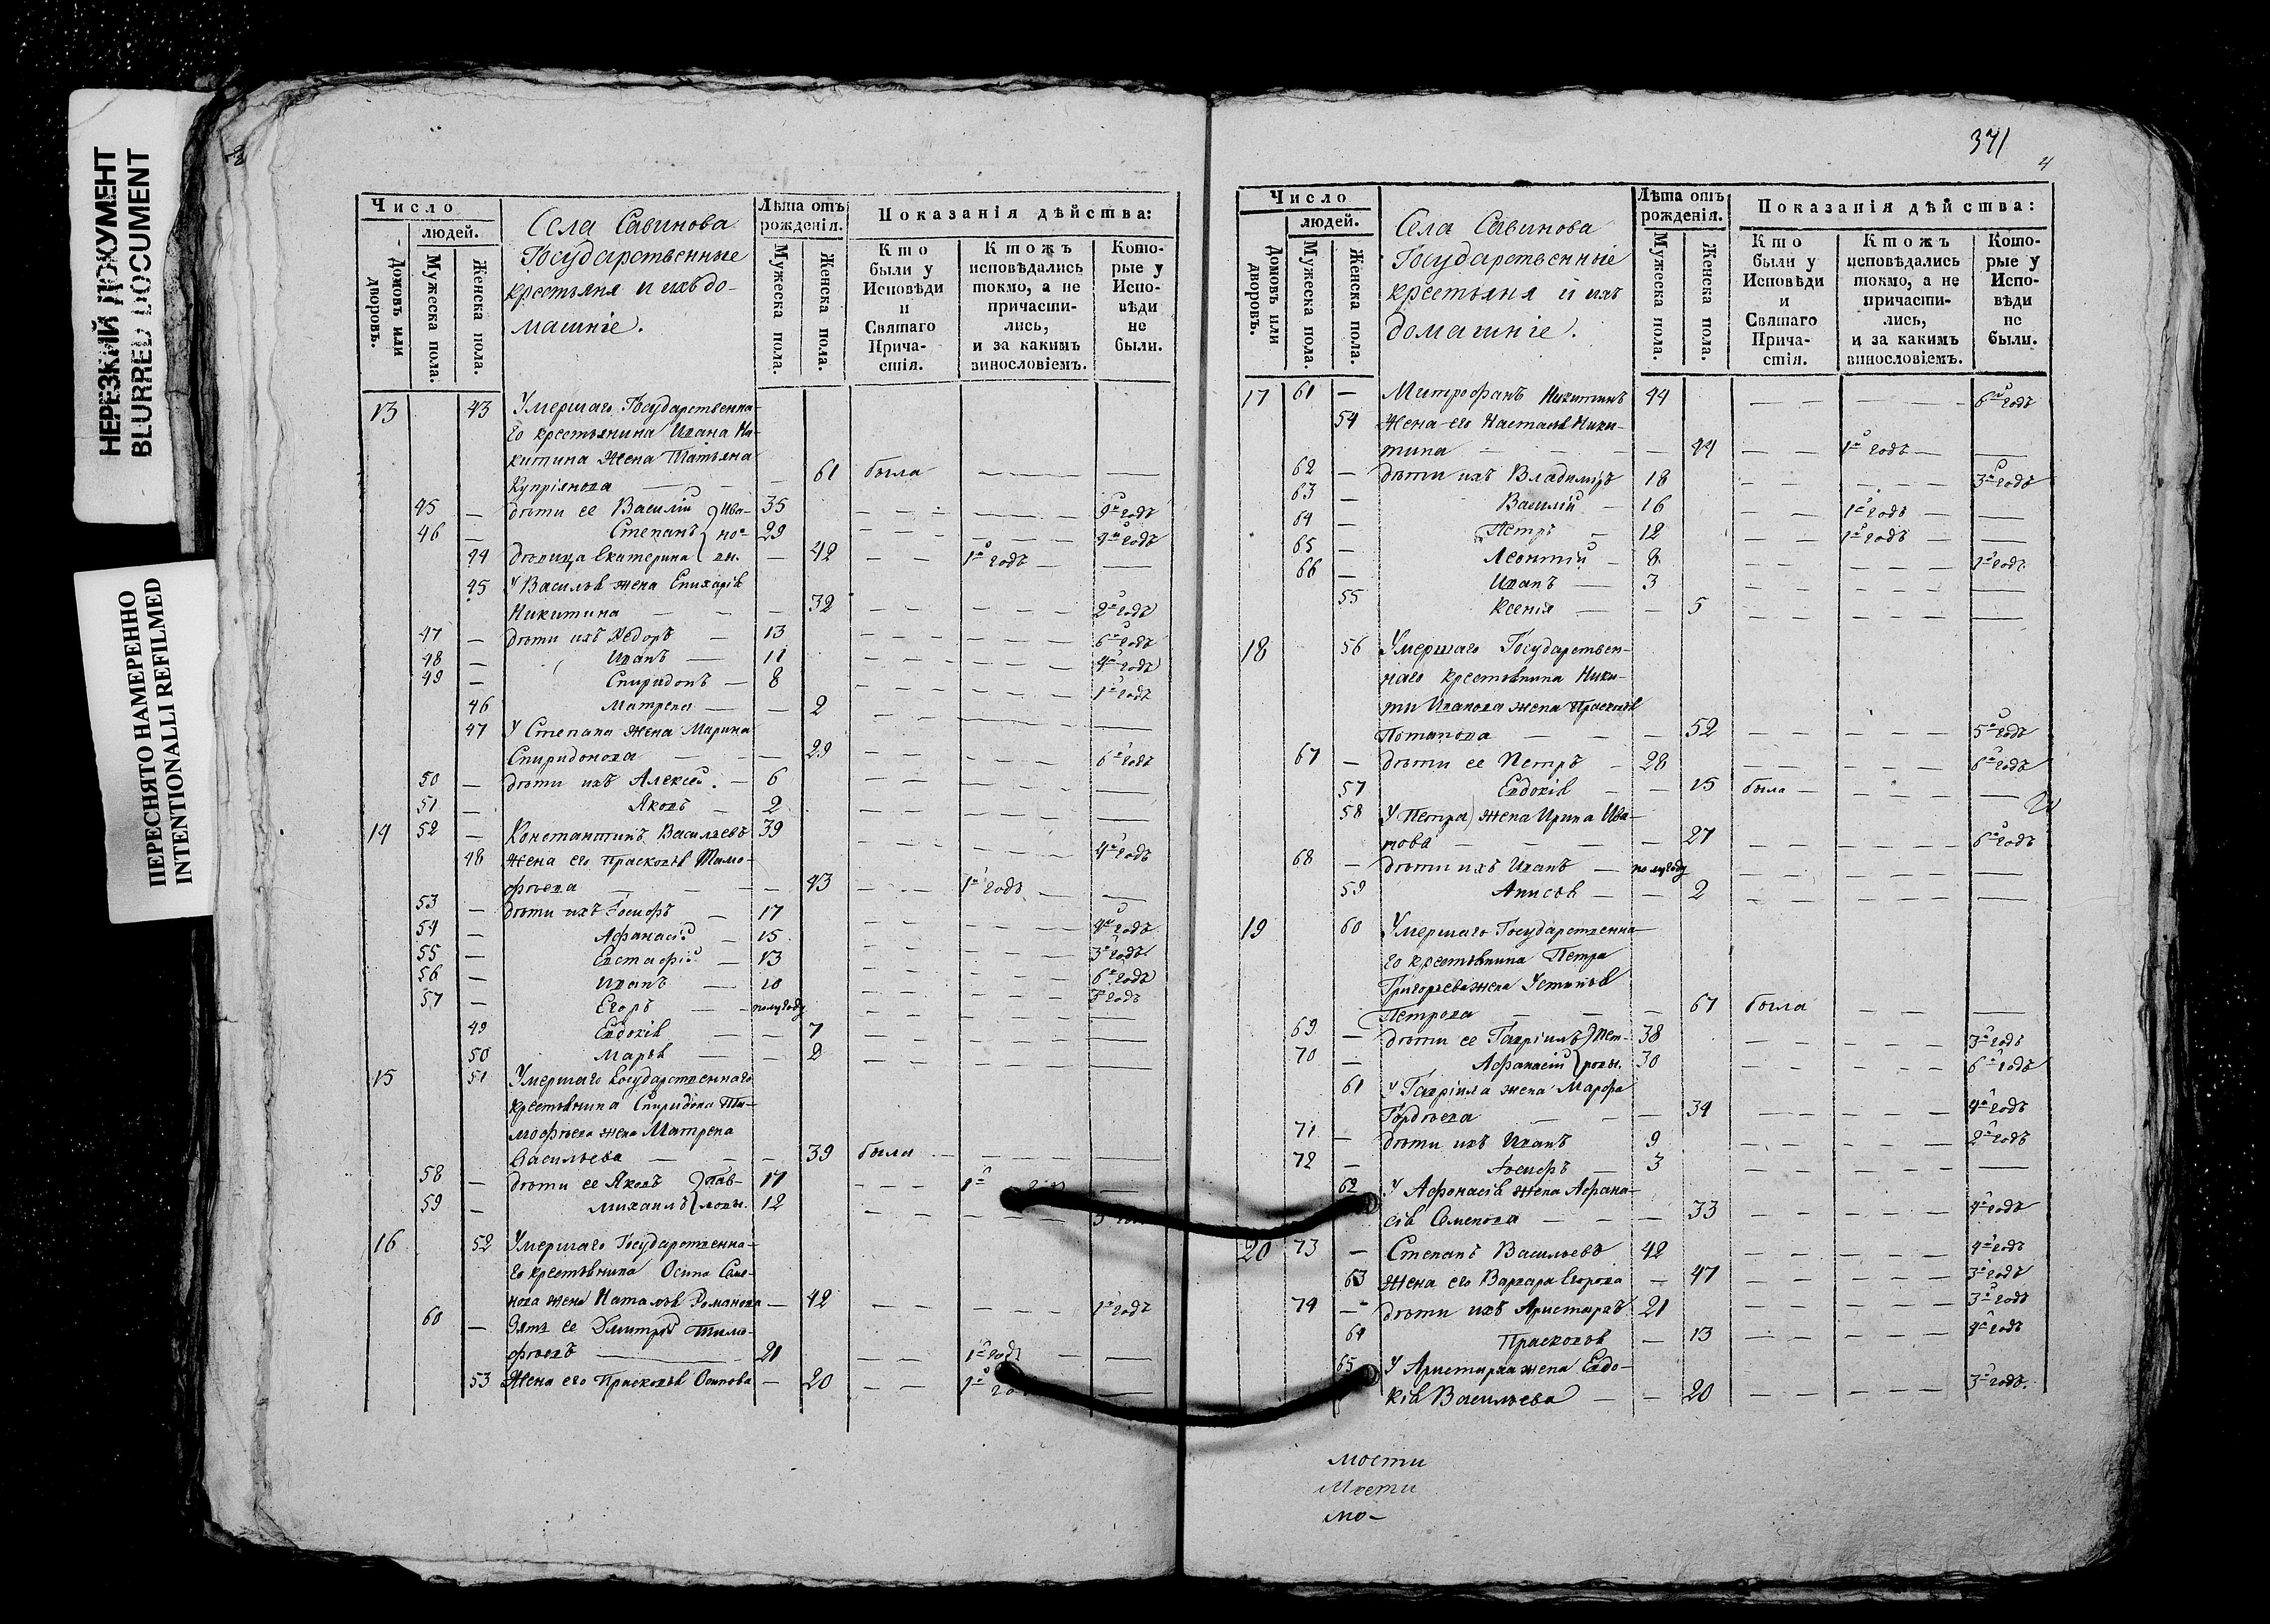 НЕРЕЗКИЙ ДОКУМЕНТ
BLURRED DOCUMENT
ПЕРЕСНЯТО НАМЕРЕННО
INTENTIONALLI REFILMED
3
Число
людей.
Домовъ или дворовъ.
Мужеска пола.
Женска пола.
Села Савинова
Государственные
крестьяня и ихъ до-
машніе.
Лѣта отъ рожденія.
Мужеска пола.
Женска пола.
Показанія дѣйства:
Кто были у Исповѣди и Святаго Прича-стія.
Ктожъ исповѣдались токмо, а не причасти-лись, и за какимъ винословіемъ.
Кото-рые у Испо-вѣди не были.
13 43 Умершаго Государственна-
го крестьянина Ивана Ни-
китина Жена Татьяна
Купріянова — — — 61 была — — —
45 — дѣти ее Василій Ива- 35 — — — — — — 9й годъ
46 — Степанъ но- 29 — — — — — — 9й годъ
44 дѣвица Екатерина вы. — 42 — — 1й годъ — —
45 У Василья жена Епихарія
Никитина — — — 32 — — — — — — 2й годъ
47 — дѣти ихъ Ѳедоръ — 13 — — — — — — 6й годъ
48 — Иванъ — 11 — — — — — — 4й годъ
49 — Спиридонъ — 8 — — — — — — 1й годъ
46 Матрена — — 2 — — — — — — —
47 У Степана жена Марина
Спиридонова — — 29 — — — — — — 6й годъ
50 — дѣти ихъ Алексѣй — 6 — — — — — — —
51 — Яковъ — 2 — — — — — — —
14 52 — Константинъ Васильевъ 39 — — — — — — 4й годъ
48 жена его Прасковья Тимо-
фѣева — — — 43 — — 1й годъ — —
53 — дѣти ихъ Іосифъ — 17 — — — — — — 4й годъ
54 — Афанасій — 15 — — — — — — 3й годъ
55 — Евстафій — 13 — — — — — — 6й годъ
56 — Иванъ — 10 — — — — — — годъ
57 — Егоръ — — полугоду — — — — — — —
49 Евдокія — — 7 — — — — — — —
50 Марья — — 2 — — — — — — —
15 51 Умершаго Государственнаго
крестьянина Спиридона Ти-
мофѣева жена Матрена
Васильева — — — 39 была — — — — —
58 — дѣти ее Яковъ 17 — — — 1й —
59 — Михаилъ 12 — — — — — —
16 52 Умершаго Государственна-
го крестьянина Осипа Семе-
нова жена Наталья Романова — 42 — — — — — 1й годъ
60 — Зять ее Дмитрій Тимо-
фѣевъ — 21 — — 1й годъ — —
53 Жена его Прасковья Осипова — 20 — — 1й го —
371
4
Число
людей.
Домовъ или дворовъ.
Мужеска пола.
Женска пола.
Села Савинова
Государственные
крестьяня и ихъ
домашніе.
Лѣта отъ рожденія.
Мужеска пола.
Женска пола.
Показанія дѣйства:
Кто были у Исповѣди и Святаго Прича-стія.
Ктожъ исповѣдались токмо, а не причасти-лись, и за какимъ винословіемъ.
Кото-рые у Испо-вѣди не были.
17 61 — Митрофанъ Никитинъ 44 — — — — — 6й годъ
54 Жена его Настасья Ники-
тина — — — 44 — — 1й годъ — —
62 — дѣти ихъ Владиміръ 18 — — — — — 3й годъ
63 — Василій — 16 — — 1й годъ — —
64 — Петръ — 12 — — 1й годъ — —
65 — Леонтій — 8 — — — — — 1й годъ
66 — Иванъ — 3 — — — — — —
55 Ксенія — — 5 — — — — — —
18 56 Умершаго Государствен-
наго крестьянина Ники-
ты Иванова жена Прасковья
Потапова — — — 52 — — — — — 5й годъ
67 — дѣти ее Петръ — 28 — — — — — 6й годъ
57 Евдокія — — 15 была — — — — —
58 У Петра жена Ирина Ива-
нова — — — 27 — — — — — 6й годъ
68 — дѣти ихъ Иванъ — полугоду — — — — — —
59 Анисья — — 2 — — — — — —
19 60 Умершаго Государственна-
го крестьянина Петра
Григорьева жена Устинья
Петрова — — — 67 была — — —
69 — дѣти ее Гавріилъ Пет- 38 — — — — — 3й годъ
70 — Афанасій ровы. 30 — — — — — 6й годъ
61 У Гавріила жена Марфа
Гордѣева — — — 34 — — — — — 4й годъ
71 — дѣти ихъ Иванъ 9 — — — — — 2й годъ
72 — Іосифъ — 3 — — — — — —
62 У Афонасія жена Афана-
сія Семенова — — — 33 — — — — — 4й годъ
20 73 — Степанъ Васильевъ 42 — — — — — 4й годъ
63 Жена его Варвара Егорова — 47 — — — — — 3й годъ
74 — дѣти ихъ Аристархъ 21 — — — — — 3й годъ
64 Прасковья — 13 — — — — — 4й годъ
65 У Аристарха жена Евдо-
кія Васильева — — 20 — — — — — 3й годъ.
мости
Мости
мо-